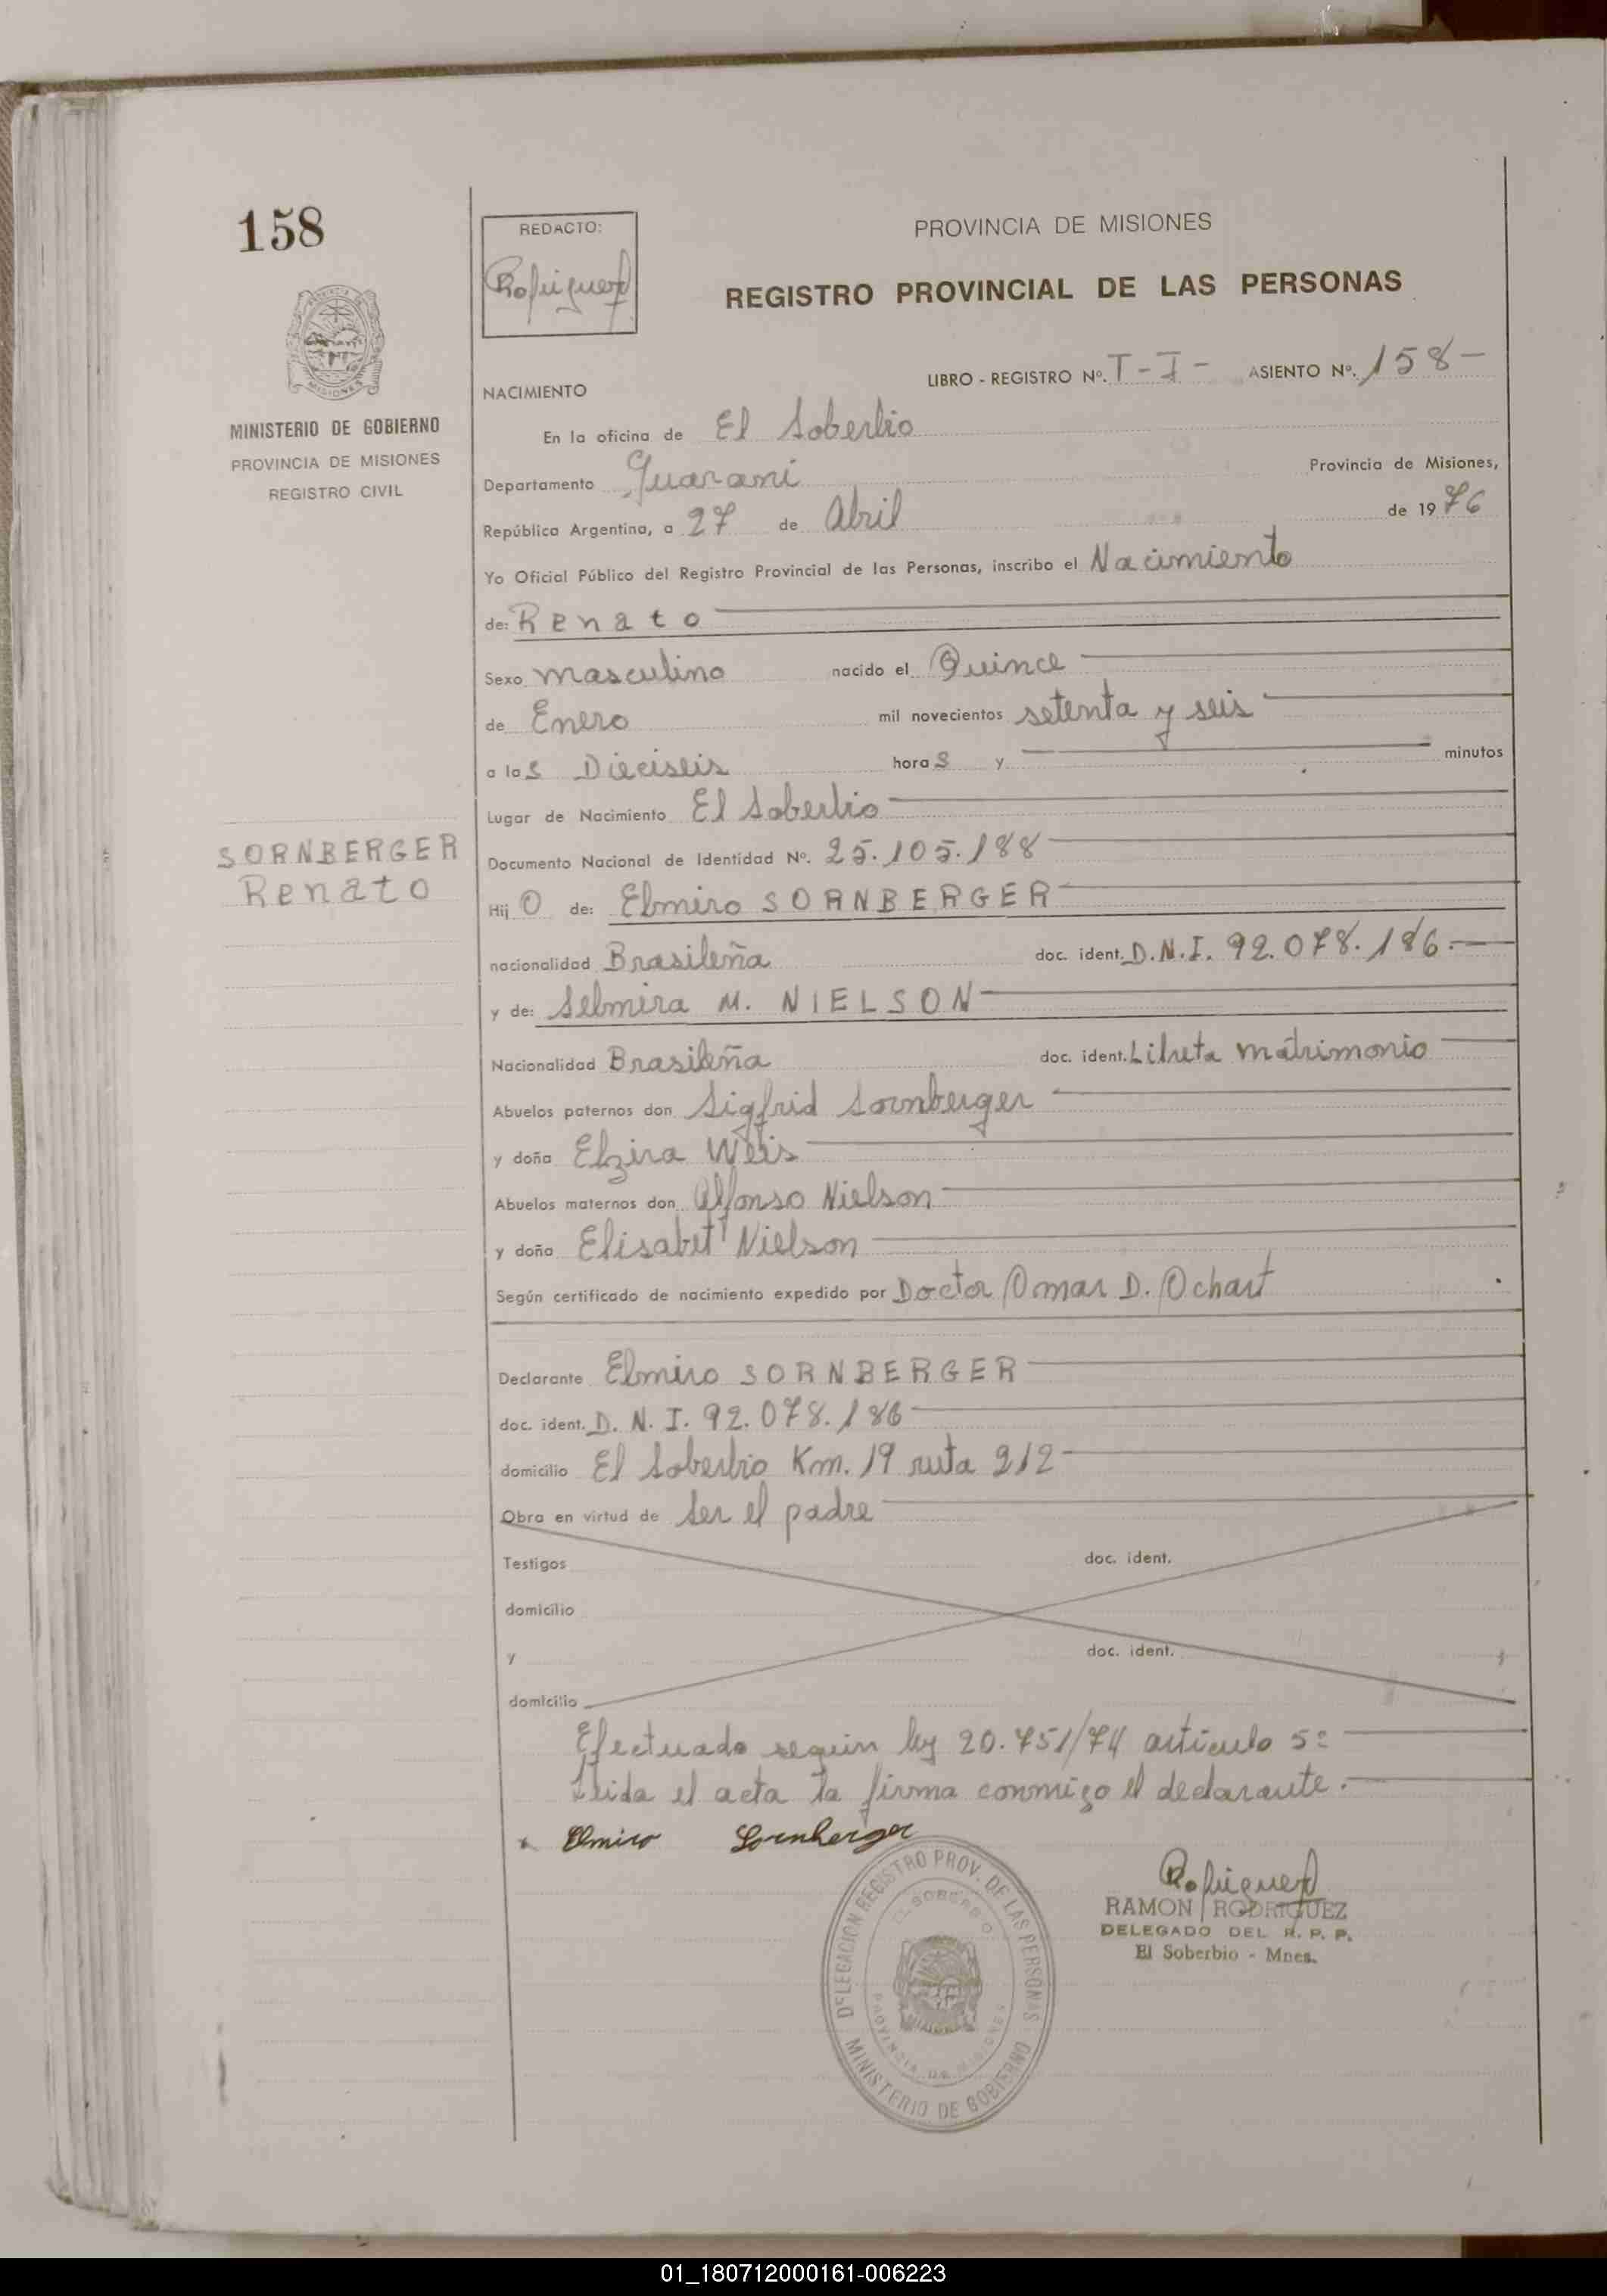 158
REDACTO:
Rodriguez
PROVINCIA DE MISIONES
REGISTRO PROVINCIAL DE LAS PERSONAS
MINISTERIO DE GOBIERNO
PROVINCIA DE MISIONES
REGISTRO CIVIL
LIBRO - REGISTRO Nº. T - I - ASIENTO Nº. 158 -
NACIMIENTO
En la oficina de El Soberbio
Departamento Guarani Provincia de Misiones,
República Argentina, a 27 de Abril de 1976
Yo Oficial Público del Registro Provincial de las Personas, inscribo el Nacimiento
de: Renato
Sexo masculino nacido el Quince
de Enero mil novecientos setenta y seis
a las Dieciseis horas y minutos
Lugar de Nacimiento El Soberbio
SORNBERGER
Renato
Documento Nacional de Identidad Nº. 25.105.188
Hijo de: Elmiro SORNBERGER
nacionalidad Brasileña doc. ident. D.N.I. 92.078.186.-
y de: Selmira M. NIELSON
Nacionalidad Brasileña doc. ident. Libreta matrimonio
Abuelos paternos don Sigfrid Sornberger
y doña Elzira Weis
Abuelos maternos don Alfonso Nielson
y doña Elisabet Nielson
Según certificado de nacimiento expedido por Doctor Omar D. Ochart
Declarante Elmiro SORNBERGER
doc. ident. D. N. I. 92.078.186
domicilio El Soberbio Km. 19 ruta 212
Obra en virtud de ser el padre
Testigos doc. ident.
domicilio
y doc. ident.
domicilio
Efectuado seguin ley 20.751/74 articulo 5º
Leida el acta la firma conmigo el declarante.
x Elmiro Sornberger
Rodriguez
RAMON RODRIGUEZ
DELEGADO DEL R. P. P.
El Soberbio - Mnes.
DELEGACION REGISTRO PROV. DE LAS PERSONAS
EL SOBERBIO
PROVINCIA DE MISIONES
MINISTERIO DE GOBIERNO
01_180712000161-006223